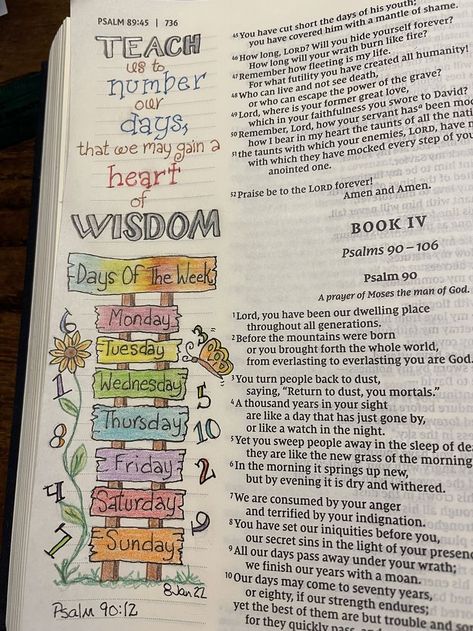 PSALM 89:45 | 736
TEACH
us to
number
our
days,
that we may gain a
heart
of
WISDOM
Days Of The Week
Monday
Tuesday
Wednesday
Thursday
Friday
Saturday
Sunday
6
3
1
5
8
10
4
2
7
9
8 Jan 22
Psalm 90:12
45 You have cut short the days of his youth;
you have covered him with a mantle of shame.
46 How long, LORD? Will you hide yourself forever?
How long will your wrath burn like fire?
47 Remember how fleeting is my life.
For what futility you have created all humanity!
48 Who can live and not see death,
or who can escape the power of the grave?
49 Lord, where is your former great love,
which in your faithfulness you swore to David?
50 Remember, Lord, how your servant has been mo
how I bear in my heart the taunts of all the nati
51 the taunts with which your enemies, LORD, have
with which they have mocked every step of you
anointed one.
52 Praise be to the LORD forever!
Amen and Amen.
BOOK IV
Psalms 90–106
Psalm 90
A prayer of Moses the man of God.
1 Lord, you have been our dwelling place
throughout all generations.
2 Before the mountains were born
or you brought forth the whole world,
from everlasting to everlasting you are God.
3 You turn people back to dust,
saying, "Return to dust, you mortals."
4 A thousand years in your sight
are like a day that has just gone by,
or like a watch in the night.
5 Yet you sweep people away in the sleep of de
they are like the new grass of the morning
6 In the morning it springs up new,
but by evening it is dry and withered.
7 We are consumed by your anger
and terrified by your indignation.
8 You have set our iniquities before you,
our secret sins in the light of your presen
9 All our days pass away under your wrath;
we finish our years with a moan.
10 Our days may come to seventy years,
or eighty, if our strength endures;
yet the best of them are but trouble and
for they quickly pass, and